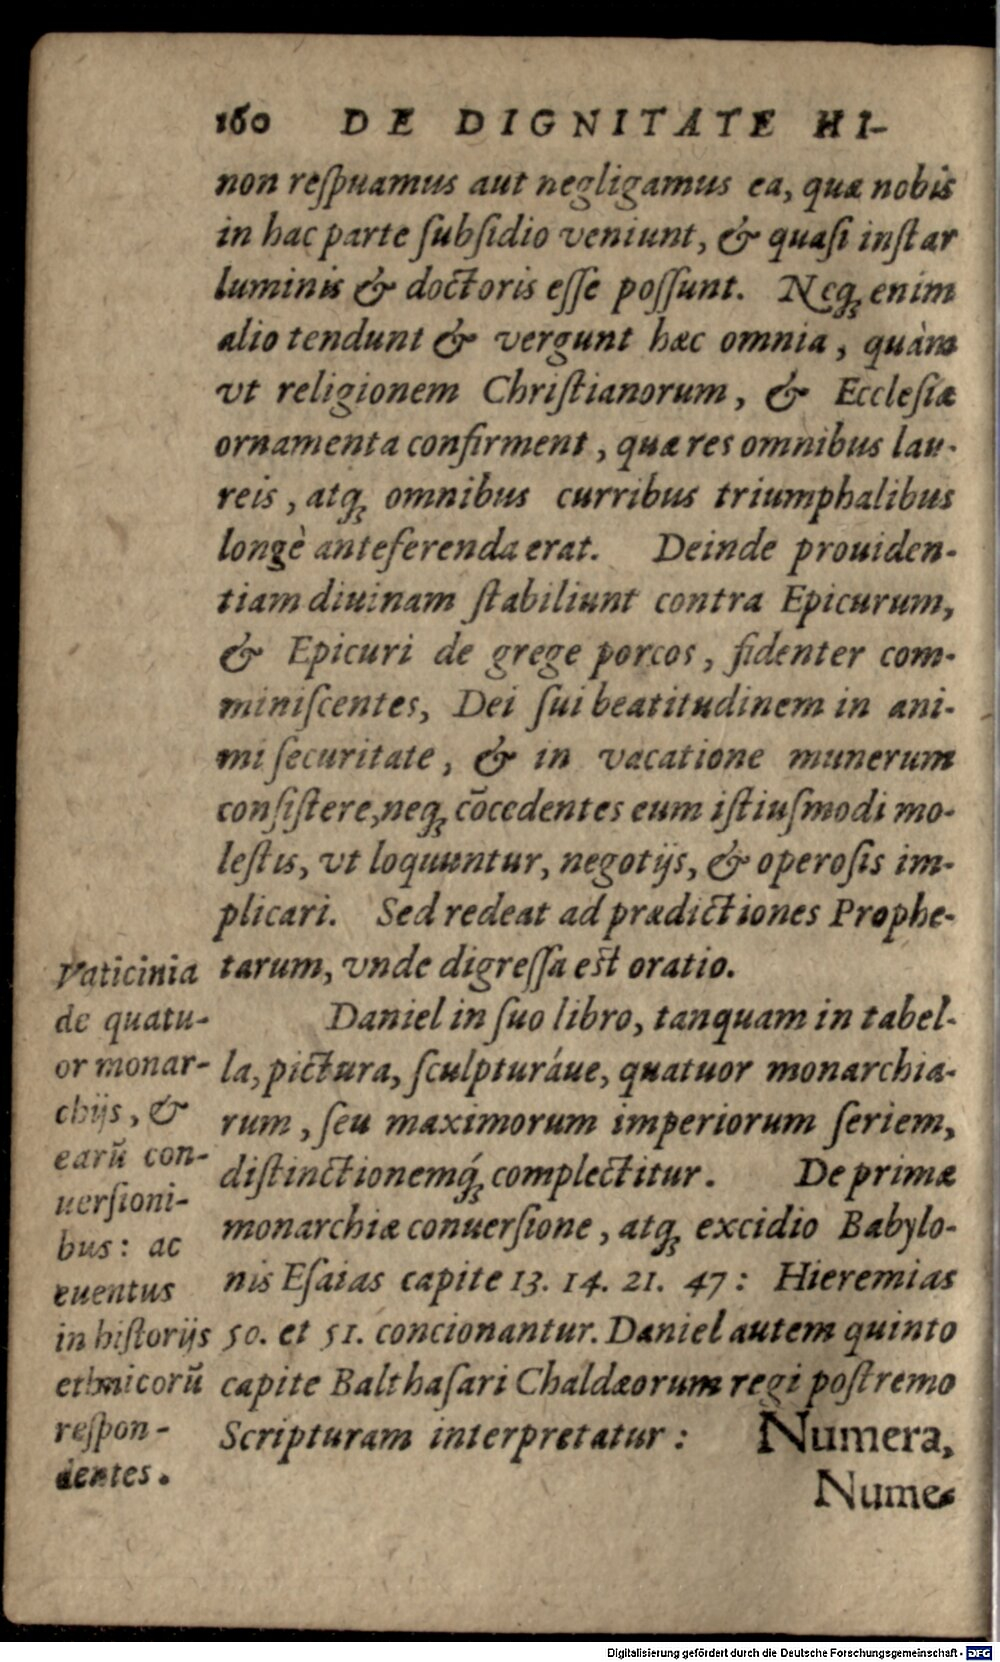 160 DE DIGNITATE HI-
non reſpuamus aut negligamus ea, quæ nobis
in hac parte ſubſidio veniunt, & quaſi inſtar
luminis & doctoris eſſe poſſunt. Neq́ꝫ enim
alio tendunt & vergunt hæc omnia, quàm
vt religionem Chriſtianorum, & Eccleſiæ
ornamenta confirment, quæ res omnibus lau-
reis, atqꝫ omnibus curribus triumphalibus
longè anteferenda erat. Deinde prouiden-
tiam diuinam ſtabiliunt contra Epicurum,
& Epicuri de grege porcos, fidenter com-
miniſcentes, Dei ſui beatitudinem in ani-
mi ſecuritate, & in vacatione munerum
conſiſtere, neqꝫ cōcedentes eum iſtiuſmodi mo-
leſtis, vt loquuntur, negotijs, & operoſis im-
plicari. Sed redeat ad prædictiones Prophe-
tarum, vnde digreſſa est oratio.
Daniel in ſuo libro, tanquam in tabel-
la, pictura, ſculpturáue, quatuor monarchia-
rum, ſeu maximorum imperiorum ſeriem,
diſtinctionemq́ꝫ complectitur. De primæ
monarchiæ conuerſione, atqꝫ excidio Babylo-
nis Eſaias capite 13. 14. 21. 47: Hieremias
50. et 51. concionantur. Daniel autem quinto
capite Balthaſari Chaldæorum regi poſtremo
Scripturam interpretatur: Numera,
Nume-
Vaticinia
de quatu-
or monar-
chijs, &
earū con-
uerſioni-
bus: ac
euentus
in hiſtorijs
ethnicorū
reſpon-
dentes.
Digitalisierung gefördert durch die Deutsche Forschungsgemeinschaft - DFG